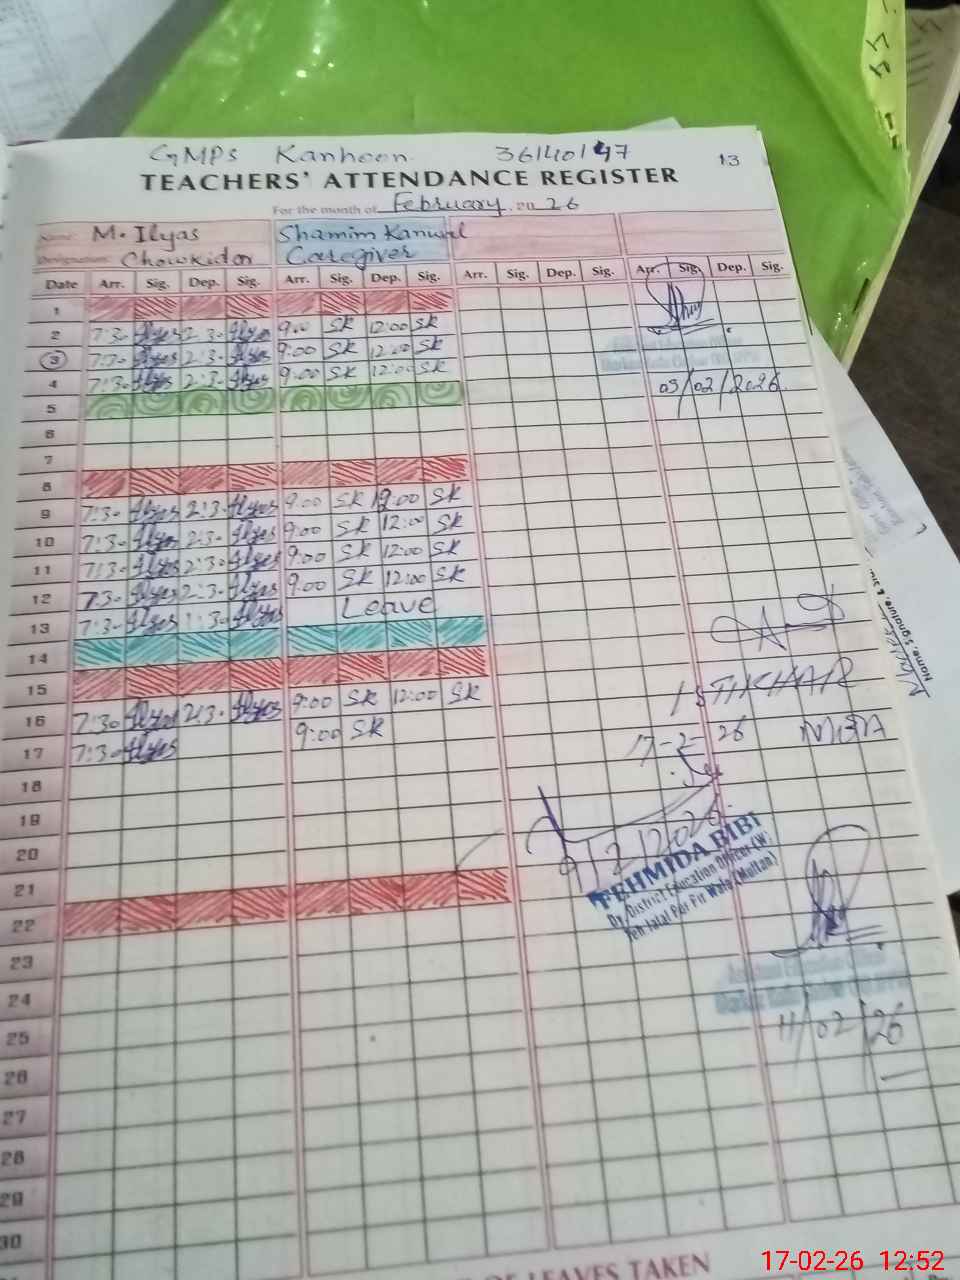 GMPS Kanhoon 36140147
13
TEACHERS' ATTENDANCE REGISTER
For the month of February 20 26
Name M. Ilyas Shamim Kanwal
Designation Chowkidar Caregiver
Date Arr. Sig. Dep. Sig. Arr. Sig. Dep. Sig. Arr. Sig. Dep. Sig. Arr. Sig. Dep. Sig.
1
2 7:30 Ilyas 2:30 Ilyas 9:00 SK 12:00 SK
3 7:30 Ilyas 2:30 Ilyas 9:00 SK 12:00 SK
4 7:30 Ilyas 2:30 Ilyas 9:00 SK 12:00 SK
03/02/2026
5
6
7
8
9 7:30 Ilyas 2:30 Ilyas 9:00 SK 12:00 SK
10 7:30 Ilyas 2:30 Ilyas 9:00 SK 12:00 SK
11 7:30 Ilyas 2:30 Ilyas 9:00 SK 12:00 SK
12 7:30 Ilyas 2:30 Ilyas 9:00 SK 12:00 SK
13 7:30 Ilyas 1:30 Ilyas Leave
14
15
ISTIKHAR
16 7:30 Ilyas 2:30 Ilyas 9:00 SK 12:00 SK
17 7:30 Ilyas 9:00 SK
17-2-26 MEA
18
19
20
9/2/2026
FEHMIDA BIBI
Dy. District Education Officer (W)
Teh Jalal Pur Pir Wala (Multan)
21
22
23
Assistant Education Officer
24
11/02/26
25
26
27
28
29
30
OF LEAVES TAKEN
Name, Signature,
17-02-26 12:52